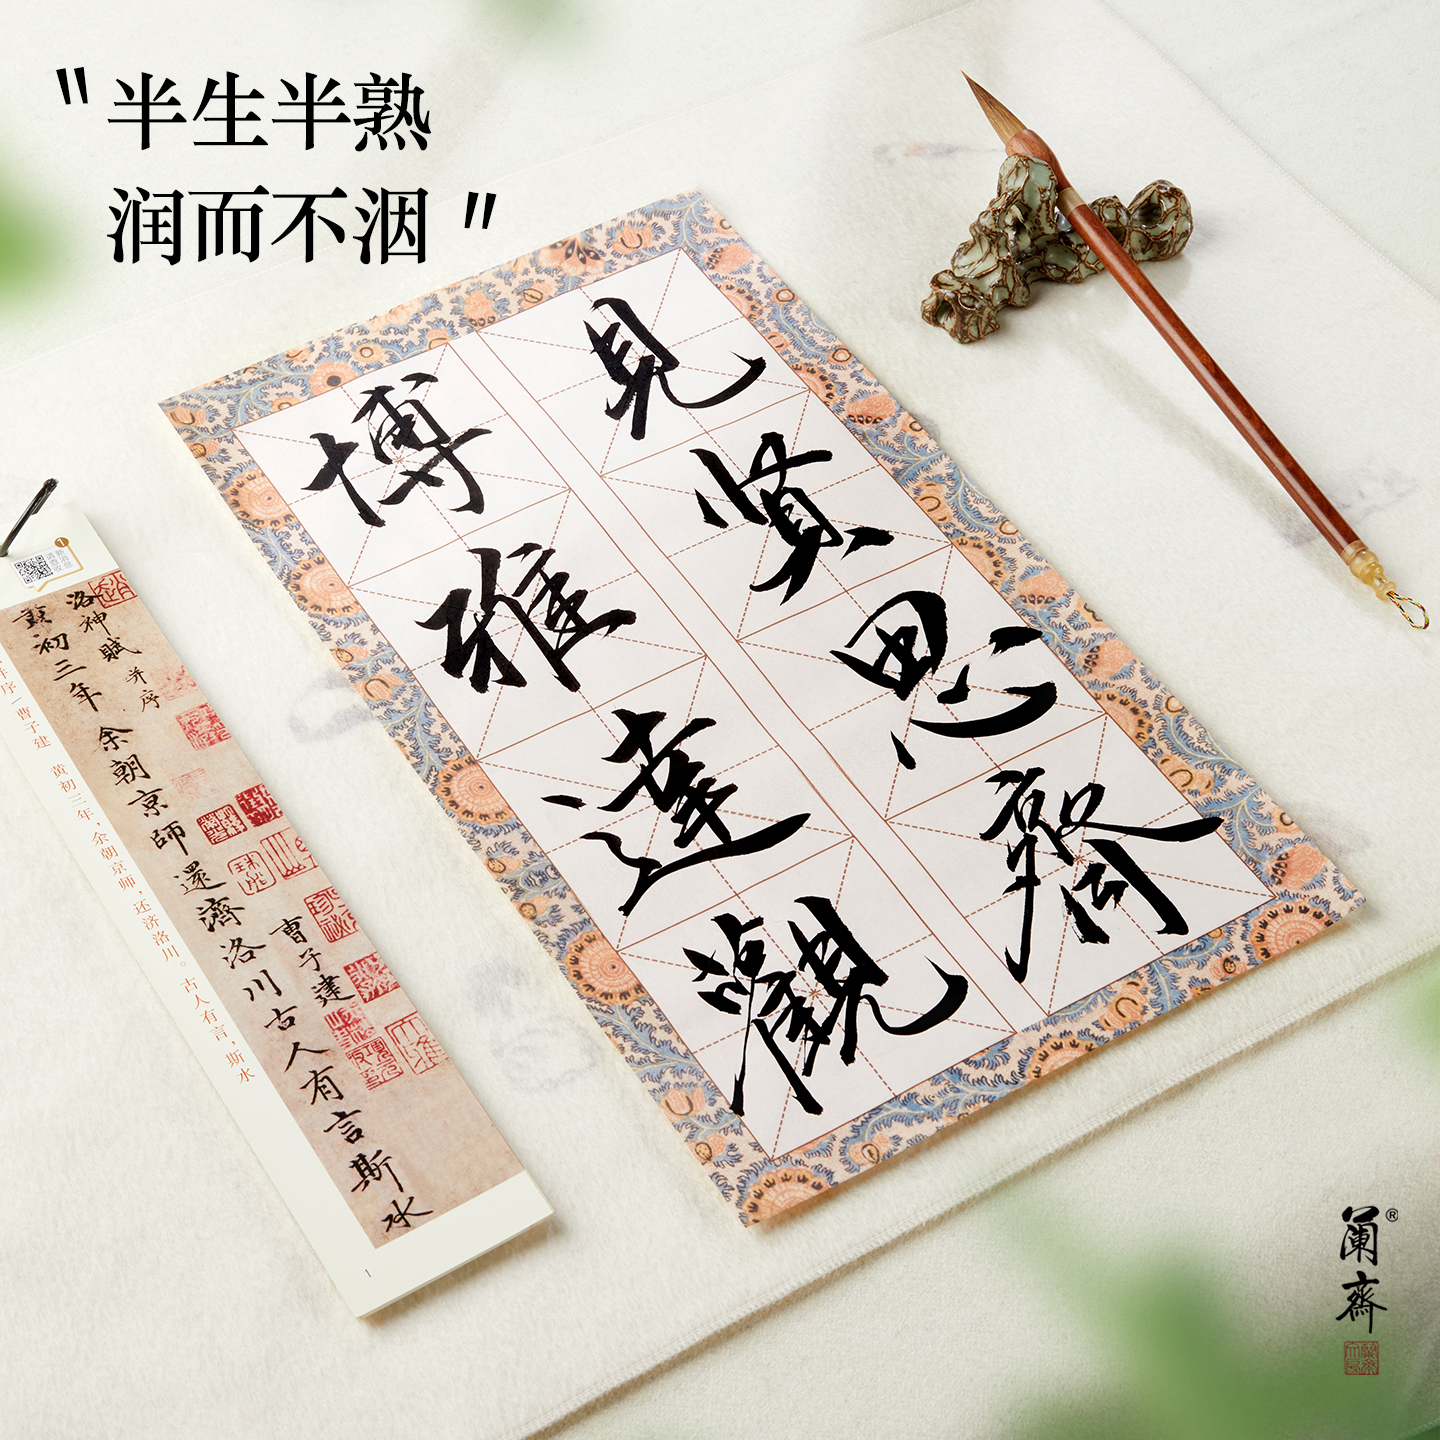 “半生半熟
润而不洇”
見賢思齊
博雅達觀
洛神賦 并序
曹子建
黃初三年余朝京師還濟洛川古人有言斯水
并序 曹子建 黄初三年，余朝京师，还济洛川。古人有言，斯水
1
1
阑齋®